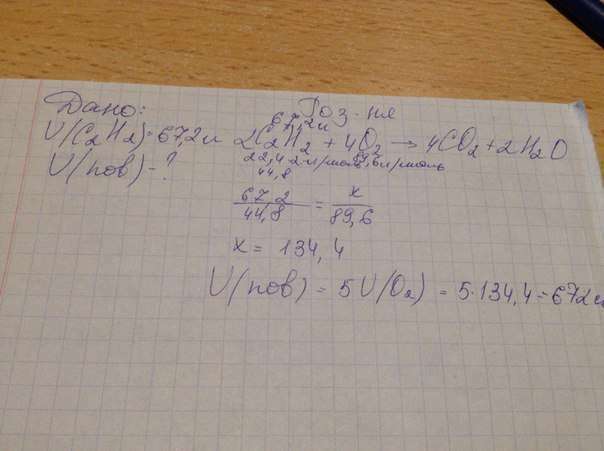 Дано: Роз-ня
V(C₂H₂)=67,2 л
V(пов)-?
67,2 л
2C₂H₂ + 4O₂ → 4CO₂ + 2H₂O
22,4·2 л/моль 89,6 л/моль
44,8
67,2/44,8 = x/89,6
x = 134,4
V(пов) = 5V(O₂) = 5·134,4 = 672 л